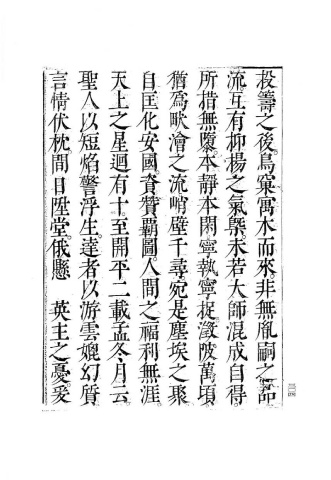 投籌之後鳥窠寓木而來非無胤嗣之
流互有抑楊之氣槩未若大師混成自得
所措無隳本靜本閑寧執寧捉澂陂萬頃
猶為畎澮之流峭壁千尋宛是塵埃之聚
自匡化安國資贊覇圖人間之福利無涯
天上之星迴有十至開平二載孟冬月云
聖人以短焰警浮生達者以游雲媲幻質
言情伏枕間日陞堂俄懸 英主之憂爰